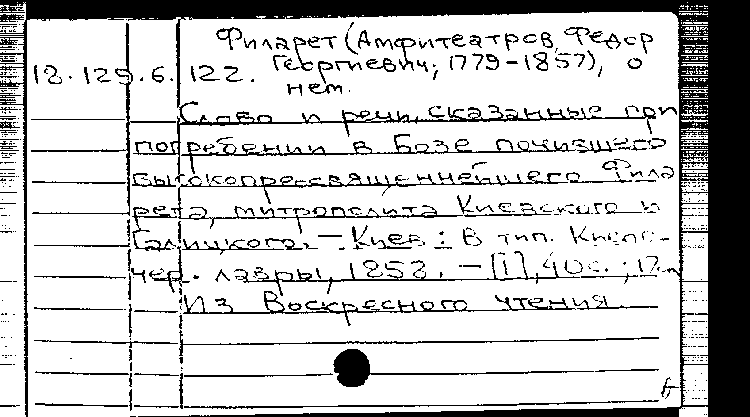 Филарет (Амфитеатров, Федор
18.129.6.122. Георгиевич; 1779-1857), о
нем.
Слово и речи, сказанные при
погребении в Бозе почившего
высокопреосвященнейшего Фила
рета, митрополита Киевского и
Галицкого. - Киев: В тип. Киево-
чер. лавры, 1858. - [1], 40с.; 17см
Из Воскресного чтения